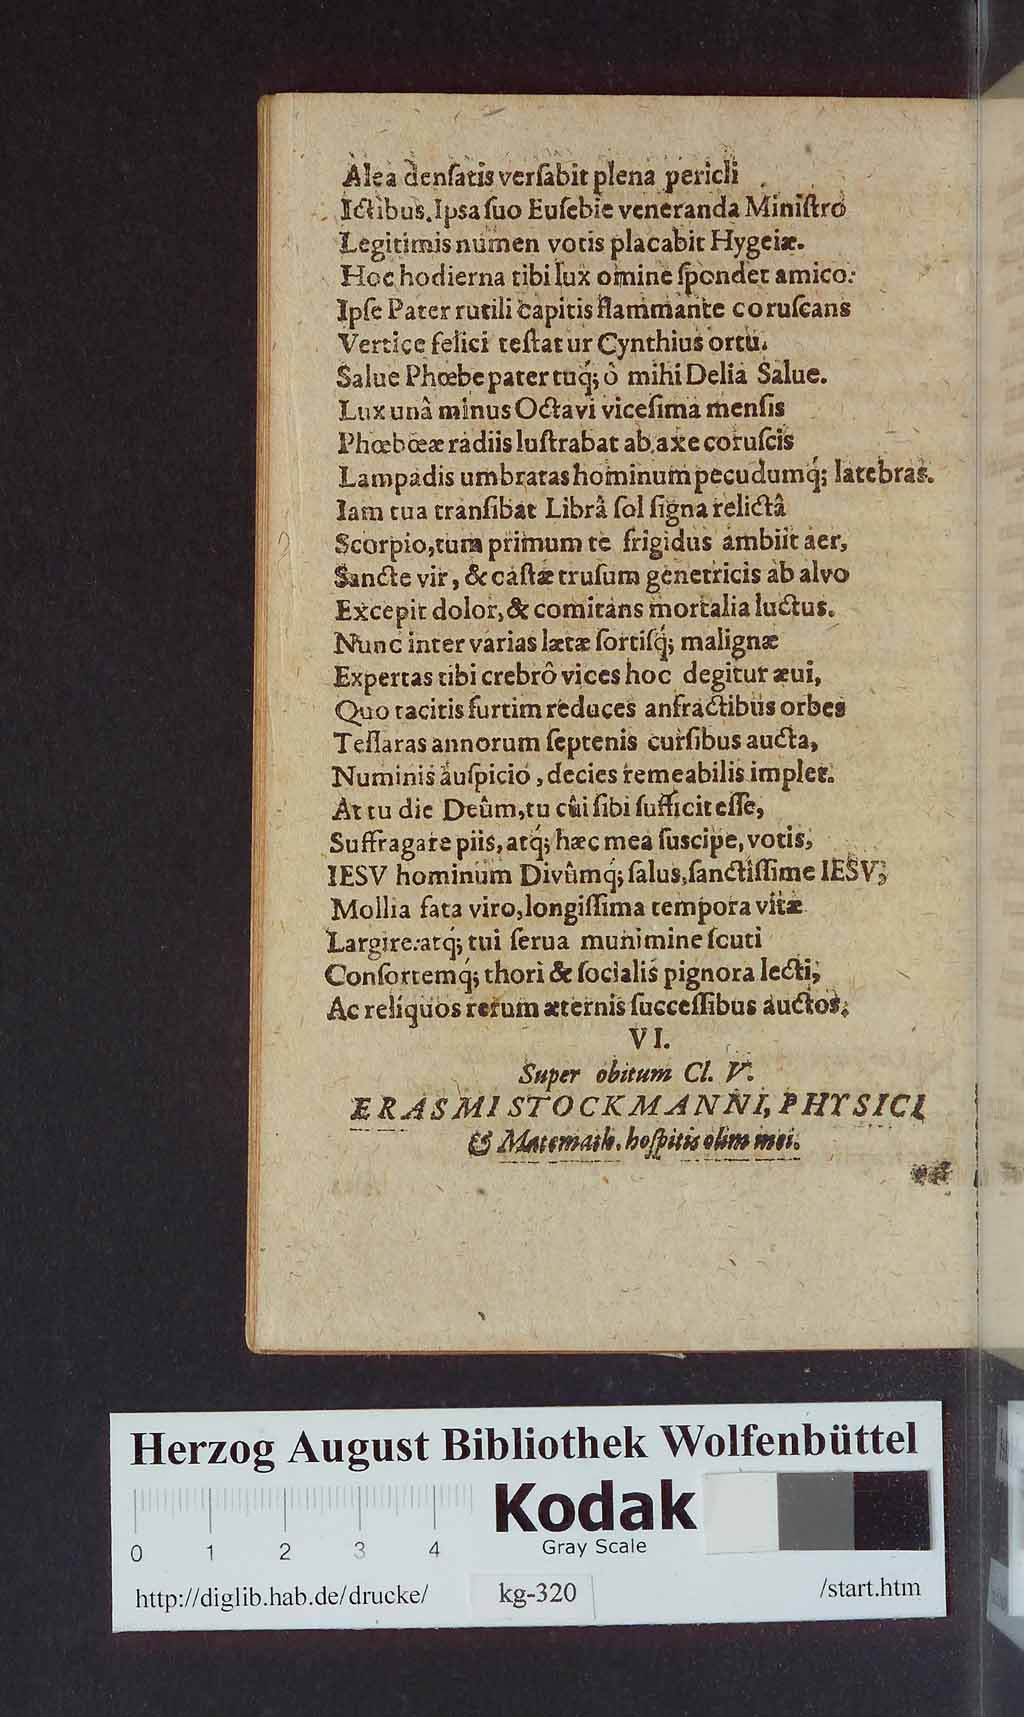 Alea denſatis verſabit plena pericli
Ictibus. Ipsa ſuo Euſebie veneranda Miniſtro
Legitimis numen votis placabit Hygeiæ.
Hoc hodierna tibi lux omine ſpondet amico:
Ipſe Pater rutili capitis flammante coruſcans
Vertice felici teſtatur Cynthius ortu.
Salue Phœbe pater tuq́; ô mihi Delia Salue.
Lux unâ minus Octavi viceſima menſis
Phœbœæ radiis luſtrabat ab axe coruſcis
Lampadis umbratas hominum pecudumq́; latebras.
Iam tua tranſibat Librâ ſol ſigna relictâ
Scorpio, tum primum te frigidus ambiit aer,
Sancte vir, & caſtæ truſum genetricis ab alvo
Excepit dolor, & comitans mortalia luctus.
Nunc inter varias lætæ ſortiſq́; malignæ
Expertas tibi crebrô vices hoc degitur æui,
Quo tacitis furtim reduces anfractibus orbes
Teſſaras annorum ſeptenis curſibus aucta,
Numinis auſpicio, decies remeabilis implet.
At tu die Deûm, tu cui ſibi ſufficit eſſe,
Suffragare piis, atq́; hæc mea ſuscipe, votis,
IESV hominum Divûmq́; ſalus, ſanctiſſime IESV;
Mollia fata viro, longiſſima tempora vitæ
Largire: atq́; tui ſerua munimine ſcuti
Conſortemq́; thori & ſocialis pignora lecti;
Ac reliquos rerum æternis ſucceſſibus auctos.
VI.
Super obitum Cl. V.
ERASMI STOCKMANNI, PHYSICI
& Matemath. hoſpitis olim mei.
Herzog August Bibliothek Wolfenbüttel
Kodak
Gray Scale
0 1 2 3 4
http://diglib.hab.de/drucke/ kg-320 /start.htm